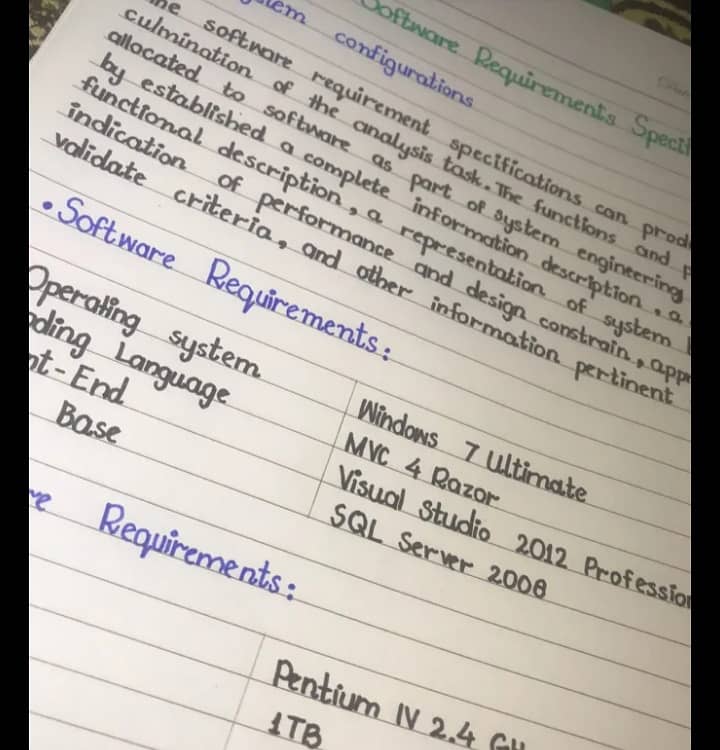 Software Requirements
configurations
software requirement specifications can
culmination of the analysis task. The functions and
allocated to software as part of system engineering
by established a complete information description, a
functional description, a representation of system
indication of performance and design constrain,
validate criteria, and other information pertinent
• Software Requirements:
Operating system Windows 7 Ultimate
Language MVC 4 Razor
End Visual Studio 2012
Base SQL Server 2008
Requirements:
Pentium IV 2.4
1TB